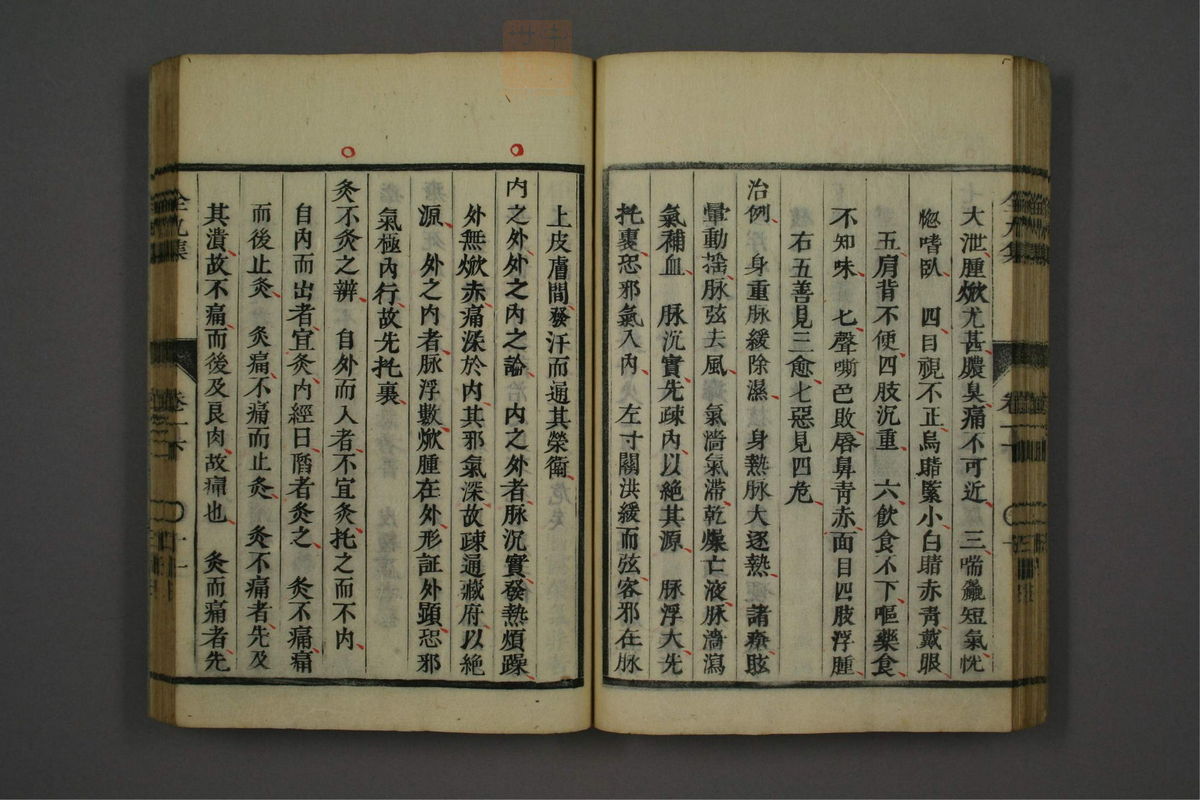 大泄腫焮尤甚膿臭痛不可近 三喘麤短氣恍
惚嗜臥 四目視不正烏睛緊小白睛赤靑戴眼
五肩背不便四肢沉重 六飲食不下嘔藥食
不知味 七聲嘶色敗唇鼻靑赤面目四肢浮腫
右五善見三愈七惡見四危
治例 身重脉緩除濕 身熱脉大逐熱 諸痒眩
暈動搖脉弦去風 氣濇氣滯乾燥亡液脉濇瀉
氣補血 脉沉實先疎內以絶其源 脉浮大先
托裏恐邪氣入內 左寸關洪緩而弦客邪在脉
上皮膚間發汗而通其榮衛
內之外外之內之論 內之外者脉沉實發熱煩躁
外無焮赤痛深於內其邪氣深故疎通藏府以絶
源 外之內者脉浮數焮腫在外形証外顕恐邪
氣極內行故先托裏
灸不灸之辨 自外而入者不宜灸托之而不內
自內而出者宜灸內經曰䐜者灸之 灸不痛痛
而後止灸 灸痛不痛而止灸 灸不痛者先及
其潰故不痛而後及良肉故痛也 灸而痛者先
全九集
卷
十一